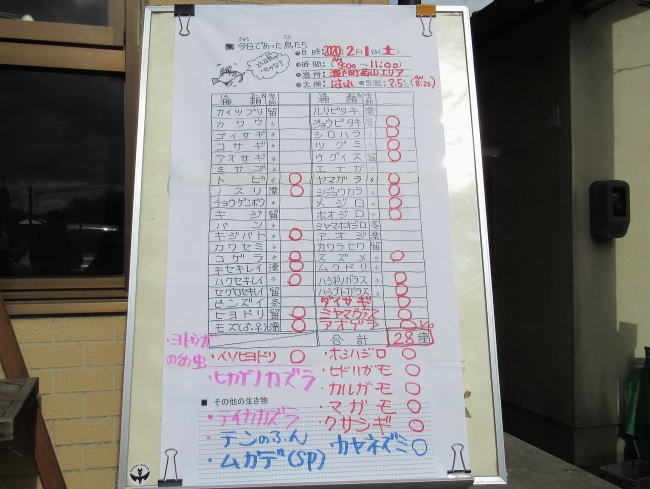 今日であった鳥たち
●日時:2020.2月1日(土)
●時間:(AM9:00~11:00)
●場所:瀬戸町南山エリア
●天候:はれ ●気温:7.5℃(AM8:20)
種類 季節 種類 季節
カイツブリ 留 ルリビタキ 漂
カワウ 〃 ジョウビタキ 冬 ○
ゴイサギ 〃 シロハラ 〃 ○
コサギ 〃 ツグミ 〃 ○
アオサギ 〃 ウグイス 留 ○
ミサゴ 〃 エナガ 〃
トビ 〃 ○ ヤマガラ 〃 ○
ノスリ 漂 ○ シジュウカラ 〃 ○
チョウゲンボウ 〃 メジロ 〃 ○
キジ 留 ホオジロ 〃 ○
バン 〃 ミヤマホオジロ 冬
キジバト 〃 ○ アオジ 漂
カワセミ 〃 カワラヒワ 留
コゲラ 〃 ○ スズメ 〃 ○
キセキレイ 漂 ○ ムクドリ 〃
ハクセキレイ 〃 ○ ハシボソガラス 〃 ○
セグロセキレイ 留 ハシブトガラス 〃 ○
ビンズイ 冬 ダイサギ ○
ヒヨドリ 留 ○ ミヤマガラス ○
モズ 漂 ○ アオゲラ ○
合計 28種
・イソヒヨドリ ○ ・ホシハジロ ○
・ヨトウガのめ虫
・ヒカゲノカズラ ・ヒドリガモ ○
・カルガモ ○
■ その他の生き物
・マガモ ○
・テイカカズラ ・クサシギ ○
・テンのふん ・カヤネズミ ○
・ムカデ(SP)